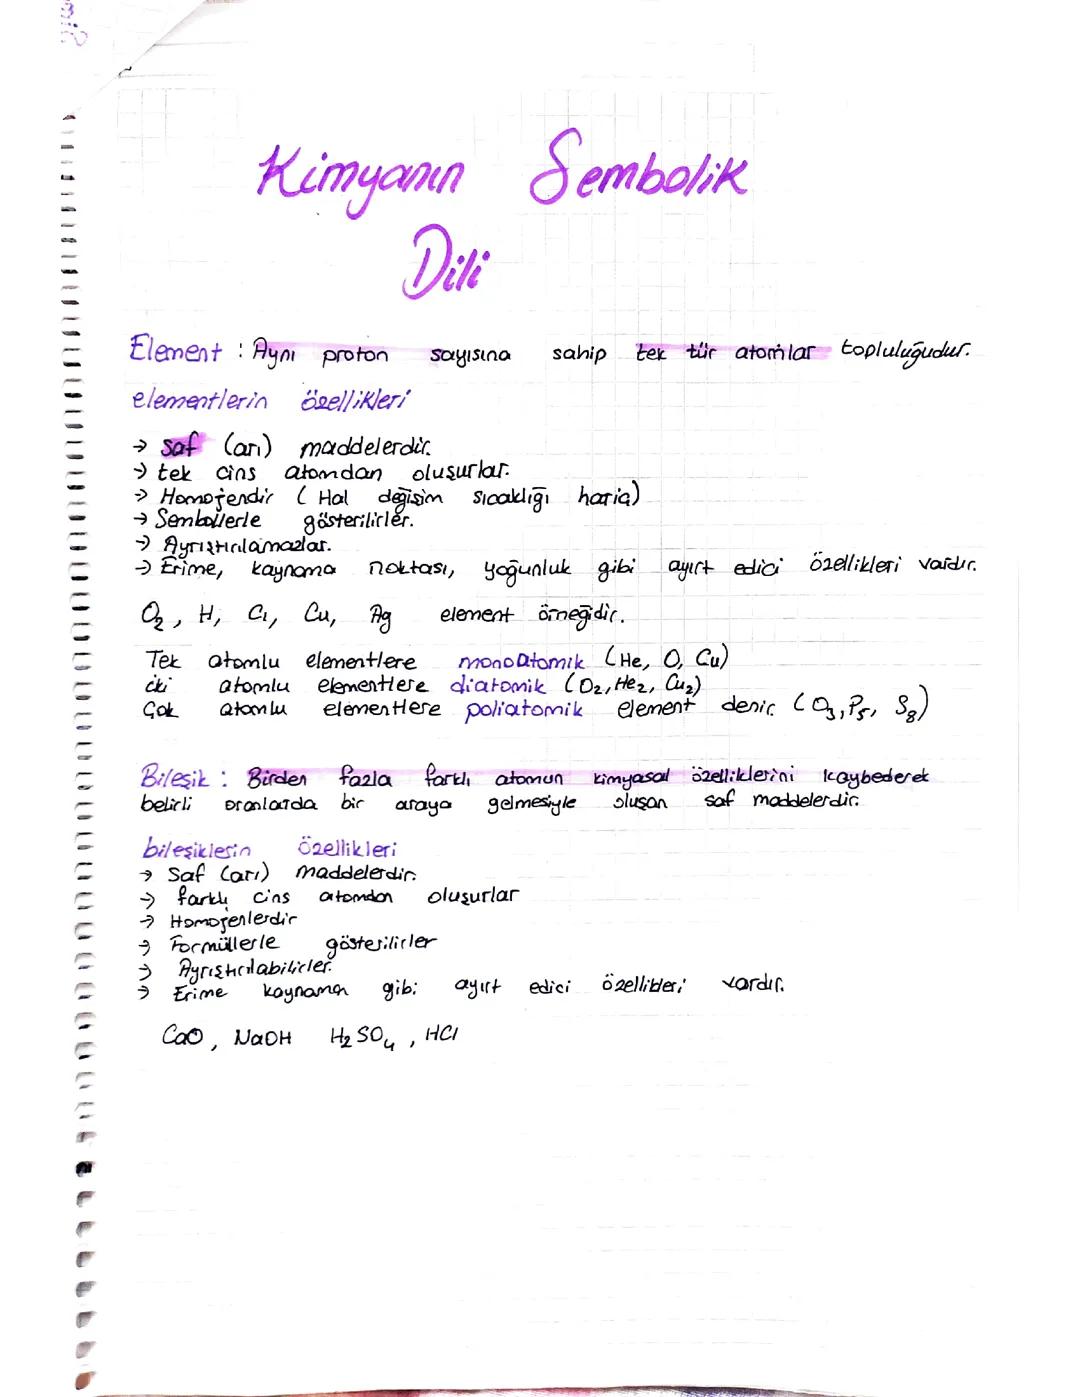 Kimyanın Sembolik
Dili
Element : Aynı proton sayısına sahip tek tür atomlar topluluğudur.
elementlerin özellikleri
→ saf (arı) maddelerdir.
→ tek cins atomdan oluşurlar.
→ Homojendir ( Hal değişim sıcaklığı hariç)
→ Sembollerle gösterilirler.
→ Ayrıştırılamazlar.
→ Erime, kaynama noktası, yoğunluk gibi ayırt edici özellikleri vardır.
O₂, H, Cı, Cu, Ag element örneğidir.
Tek atomlu elementlere monoatomik (He, O, Cu)
iki atomlu elementlere diatomik (O₂, He₂, Cu₂)
Çok atomlu elementlere poliatomik element denir. (O₃, P₅, S₈)
Bileşik : Birden fazla farklı atomun kimyasal özelliklerini kaybederek
belirli oranlarda bir araya gelmesiyle oluşan saf maddelerdir.
bileşiklerin özellikleri
→ Saf (arı) maddelerdir.
→ farklı cins atomdan oluşurlar
→ Homojenlerdir
→ Formüllerle gösterilirler
→ Ayrıştırılabilirler.
→ Erime kaynaman gibi ayırt edici özellikleri vardır.
CaO, NaOH H₂SO₄, HCl